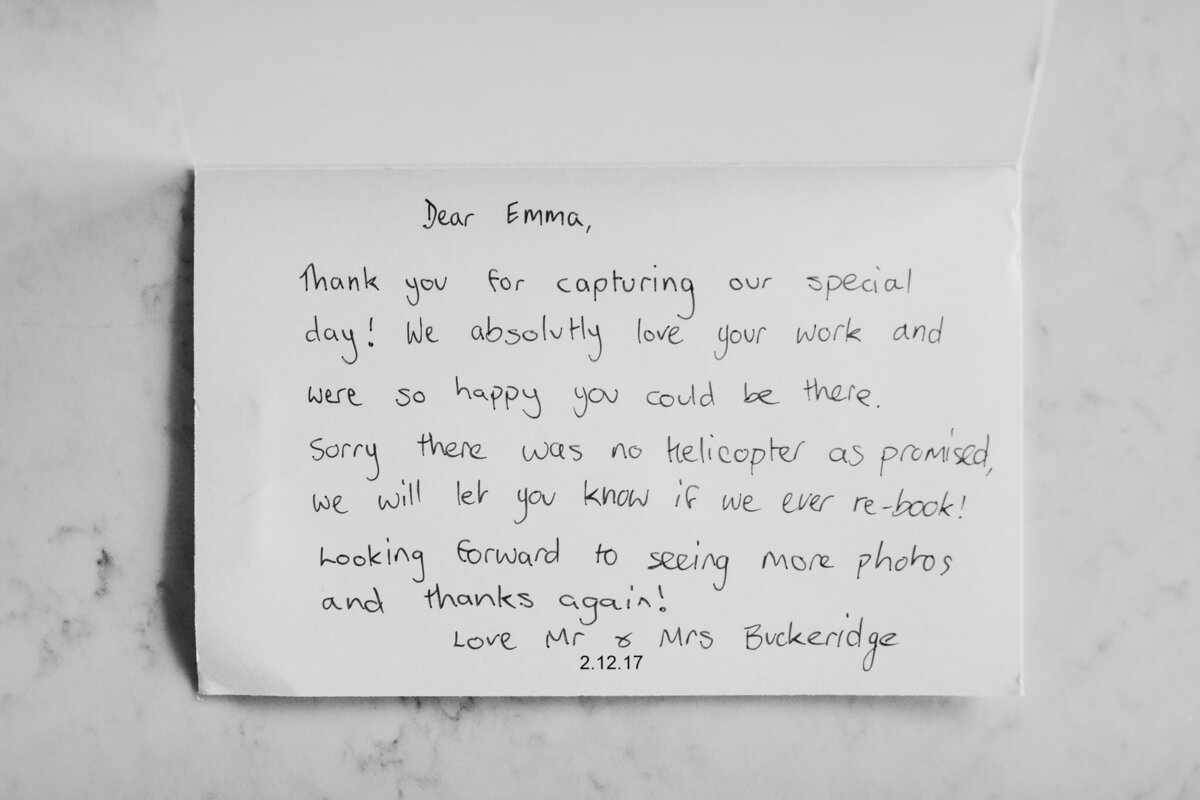 Dear Emma,
Thank you for capturing our special
day! We absolutly love your work and
were so happy you could be there.
Sorry there was no helicopter as promised,
we will let you know if we ever re-book!
Looking forward to seeing more photos
and thanks again!
Love Mr & Mrs Buckeridge
2.12.17